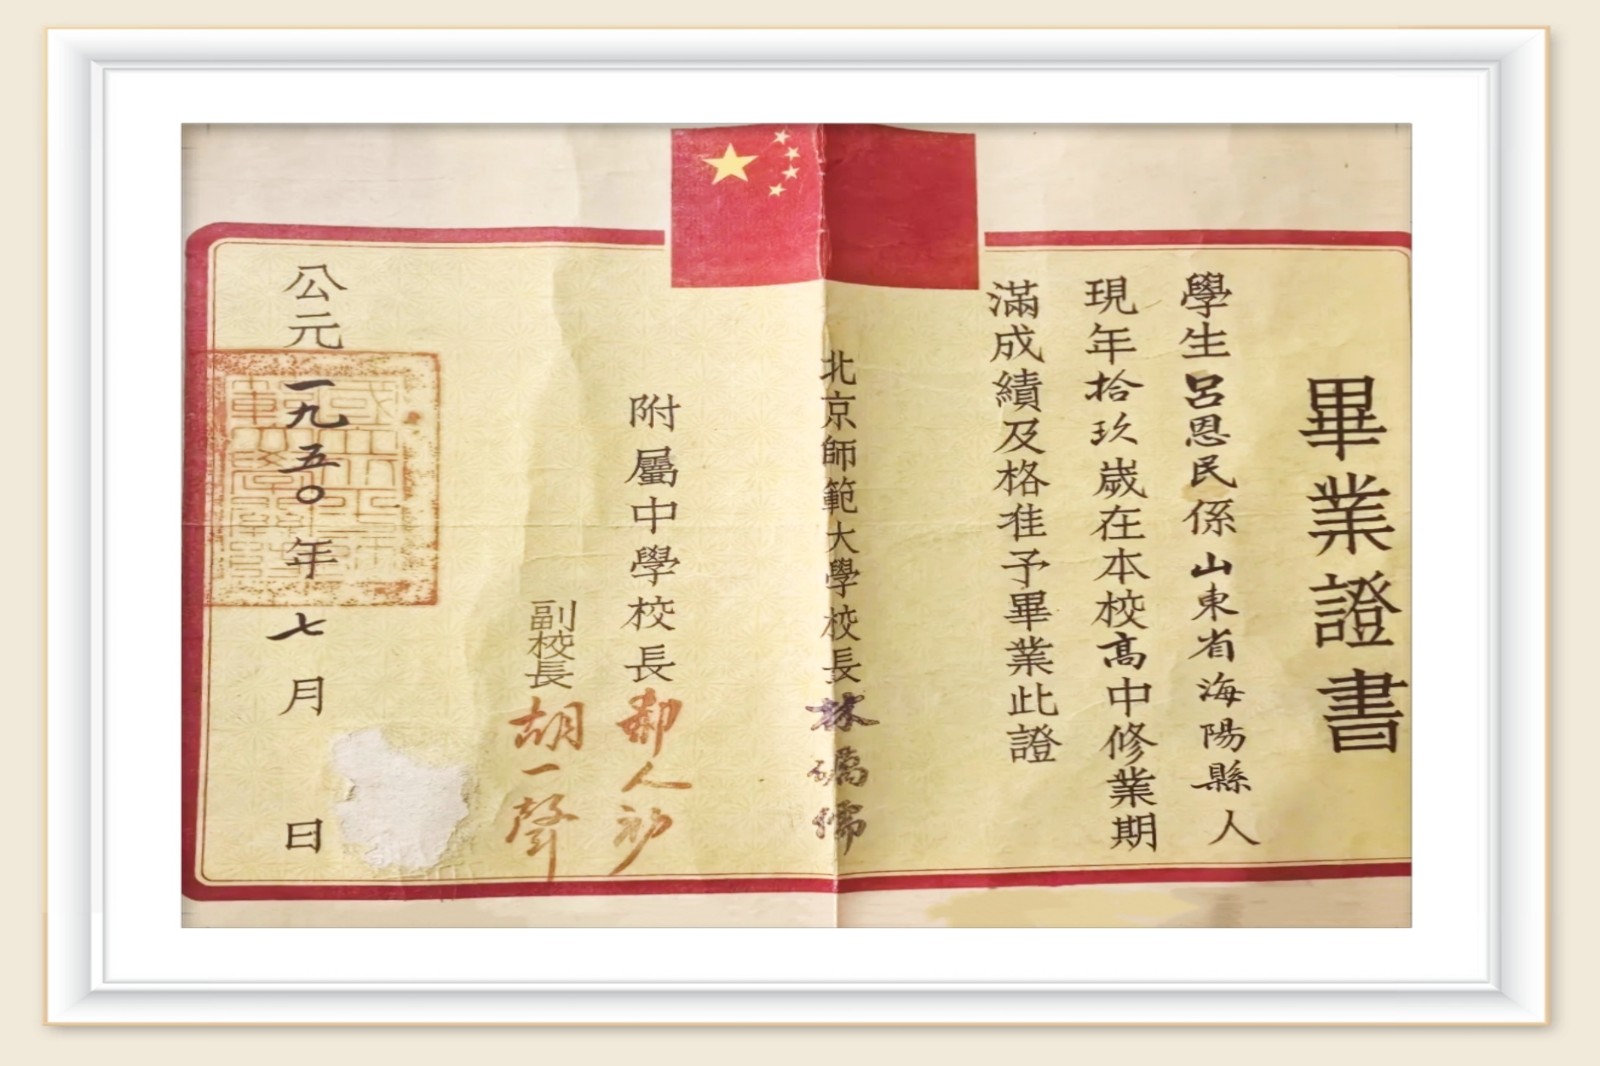 畢業證書
學生呂恩民係山東省海陽縣人
現年拾玖歲在本校高中修業期
滿成績及格准予畢業此證
北京師範大學校長林礪儒
附屬中學校長郝人初
副校長胡一聲
公元一九五〇年七月日